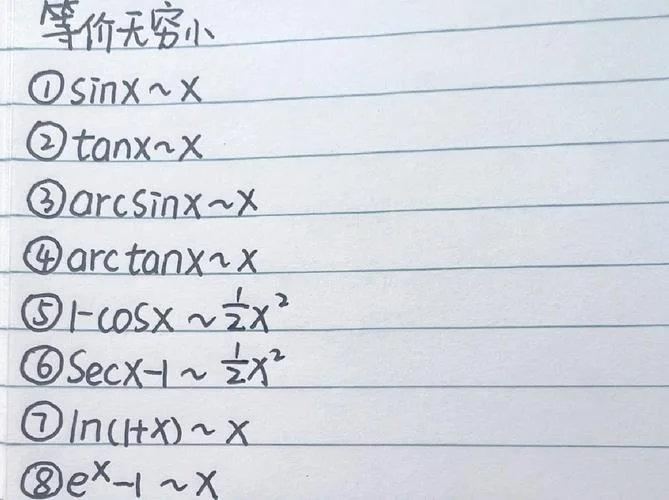 等价无穷小
①sinx~x
②tanx~x
③arcsinx~x
④arctanx~x
⑤1-cosx~½x²
⑥Secx-1~½x²
⑦ln(1+x)~x
⑧eˣ-1~x